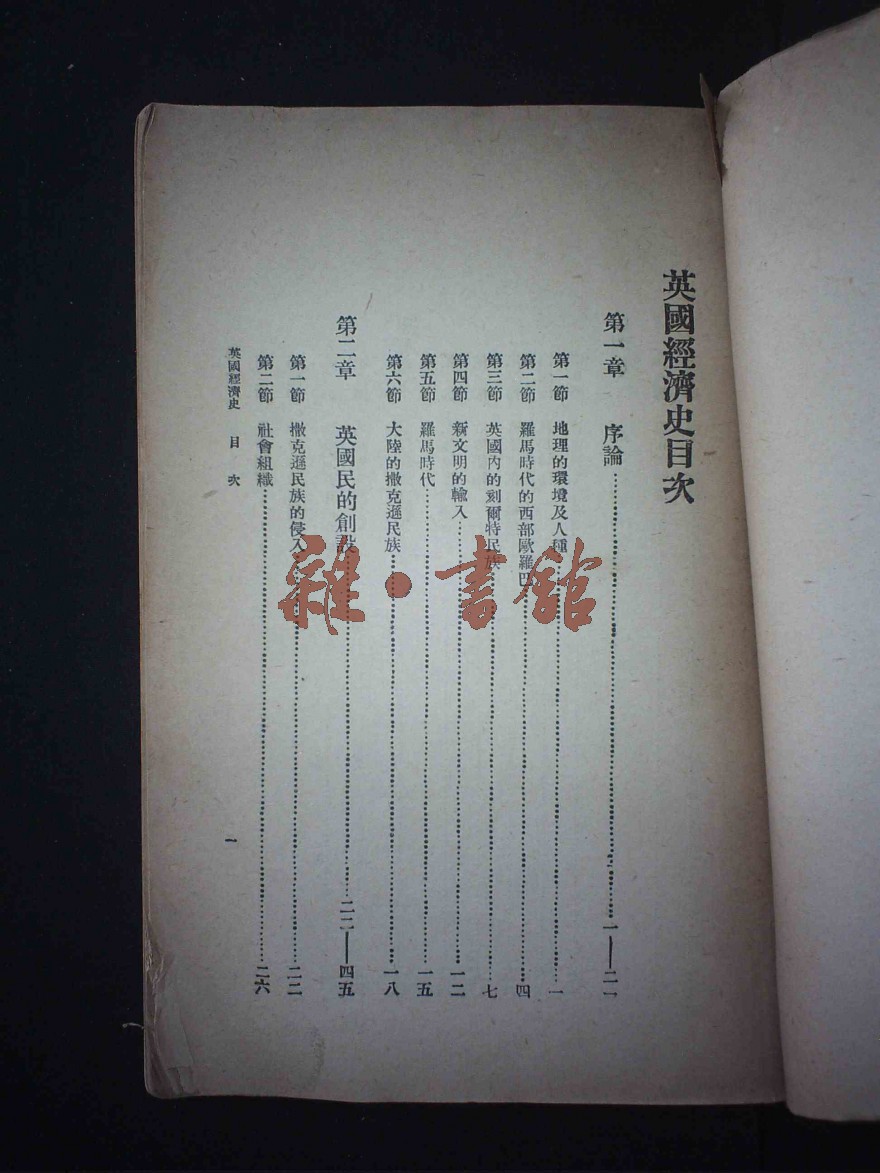 英國經濟史目次
第一章 序論……一—二一
第一節 地理的環境及人種……一
第二節 羅馬時代的西部歐羅巴……四
第三節 英國內的刻爾特民族……七
第四節 新文明的輸入……一二
第五節 羅馬時代……一五
第六節 大陸的撒克遜民族……一八
第二章 英國民的創設……二二—四五
第一節 撒克遜民族的侵入……二二
第二節 社會組織……二六
英國經濟史 目次 一
雜·書館